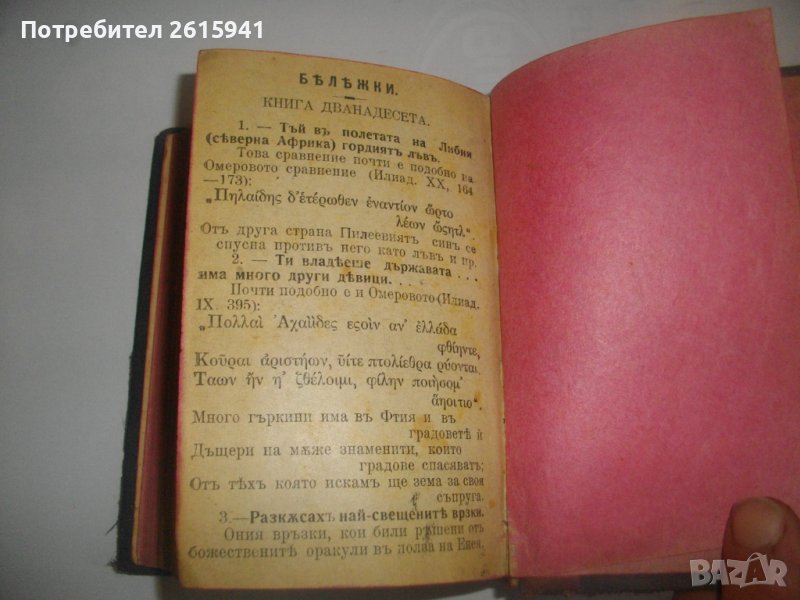 Потребител 2615941
БѢЛѢЖКИ.
КНИГА ДВАНАДЕСЕТА.
1. — Тъй въ полетата на Либия
(сѣверна Африка) гордиятъ лъвъ.
Това сравнение почти е подобно на
Омеровото сравнение (Илиад. XX, 164
—173):
„Πηλαίδης δ'ἑτέρωθεν ἐναντίον ὦρτο
λέων ὥςητλ“.
Отъ друга страна Пилеевиятъ синъ се
спусна противъ него като лъвъ и пр.
2. — Ти владѣеше държавата . . .
има много други дѣвици. . . .
Почти подобно е и Омеровото (Илиад.
IX. 395):
„Πολλαὶ Ἀχαιΐδες εςοὶν αν' ἑλλάδα
φθίηντε,
Κοῦραι ἀριστήων, ὑΐτε πτολίεθρα ρύονται.
Ταων ἤν η' ζθέλοιμι, φίλην ποιήσομ'
ἄηοιτιο“.
Много гъркини има въ Фтия и въ
градоветѣ й
Дъщери на мѫже знаменити, които
градове спасяватъ;
Отъ тѣхъ която искамъ ще зема за своя
съпруга.
3.—Разкѫсахъ най-свещенитѣ врзки.
Ония връзки, кои били рѣшени отъ
божественитѣ оракули въ полза на Енея,
BAZAR